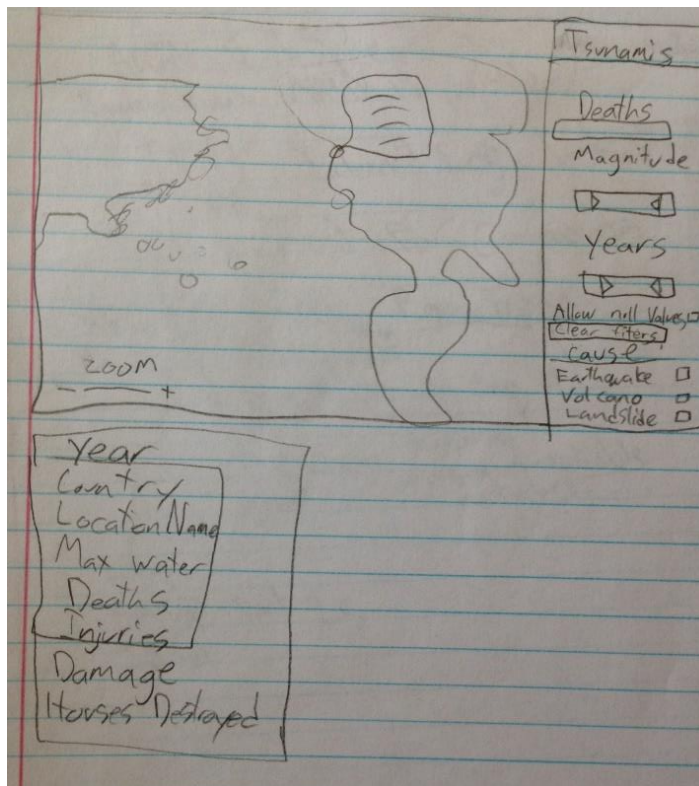 Tsunamis
Deaths
Magnitude
Years
Allow null Values
Clear filters
Cause
Earthquake
Volcano
Landslide
ZOOM
- +
Year
Country
Location Name
Max water
Deaths
Injuries
Damage
Houses Destroyed